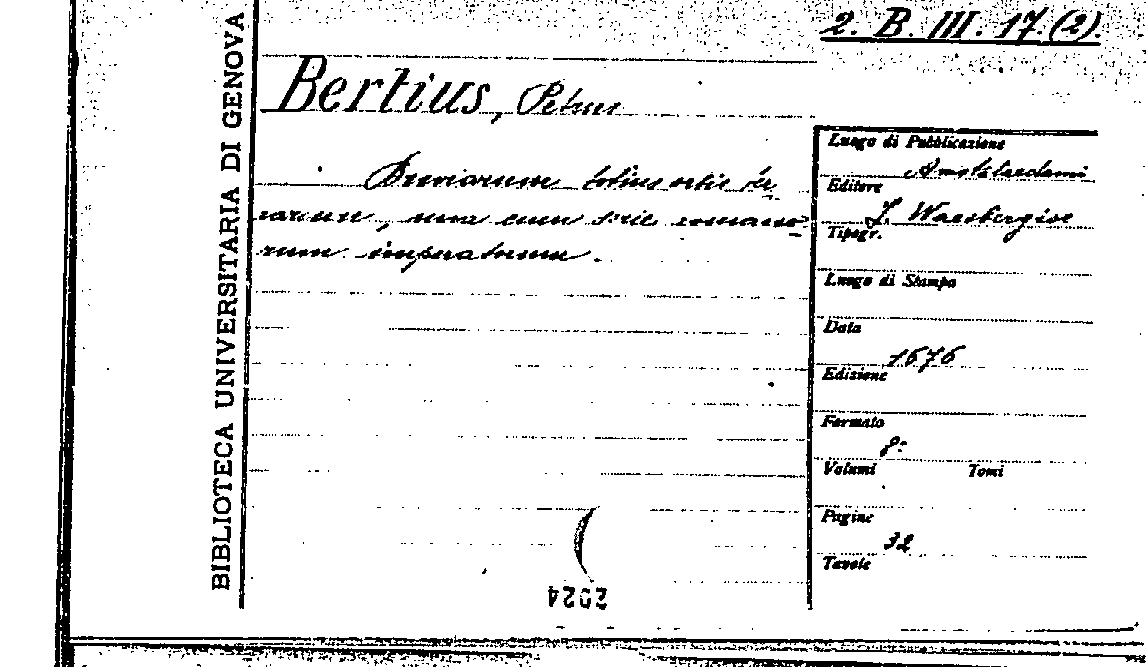 2. B. III. 17.(2).
BIBLIOTECA UNIVERSITARIA DI GENOVA
Bertius, Petrus
Breviarium totius orbis ter-
rarum, una cum serie romano-
rum imperatorum.
Luogo di Pubblicazione
Amstelaedami
Editore
J. Waesbergiae
Tipogr.
Luogo di Stampa
Data
1676
Edizione
Formato
8°
Volumi Tomi
Pagine
32
Tavole
2024